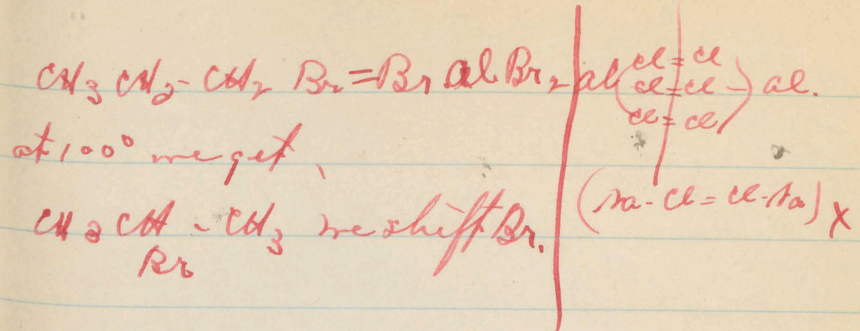 CH3 CH2-CH2 Br=Br Al Br2
at 100° we get,
CH3 CH - CH3 we shift Br.
Br
Cl=Cl
Al(Cl=Cl-)Al.
Cl=Cl
(Na-Cl=Cl-Na)x